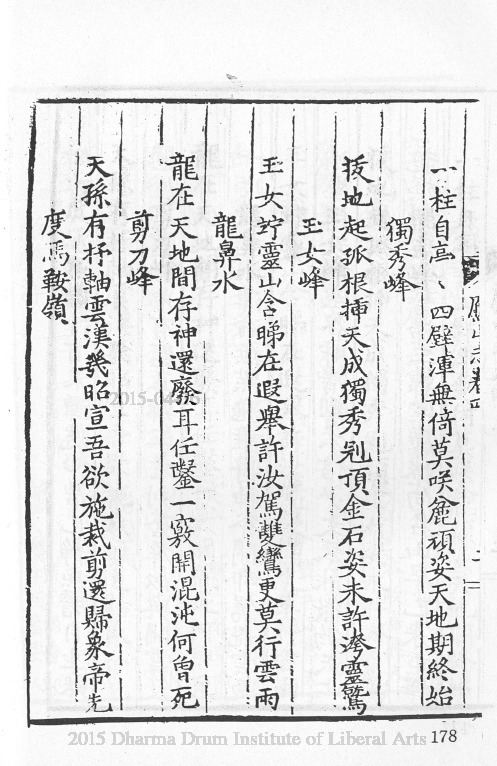 一柱自亭〻四壁渾無倚莫咲麁頑姿天地期終始
獨秀峰
拔地起孤根挿天成獨秀剜頂金石姿未許誇靈鷲
玉女峰
玉女竚靈山含睇在遐舉許汝駕雙鸞更莫行雲雨
龍鼻水
龍在天地間存神還廢耳任鑿一竅開混沌何曾死
剪刀峰
天孫有杼軸雲漢幾昭宣吾欲施裁剪還歸象帝先
度馬鞍嶺
山志卷四
二
2015-04
2015 Dharma Drum Institute of Liberal Arts
178